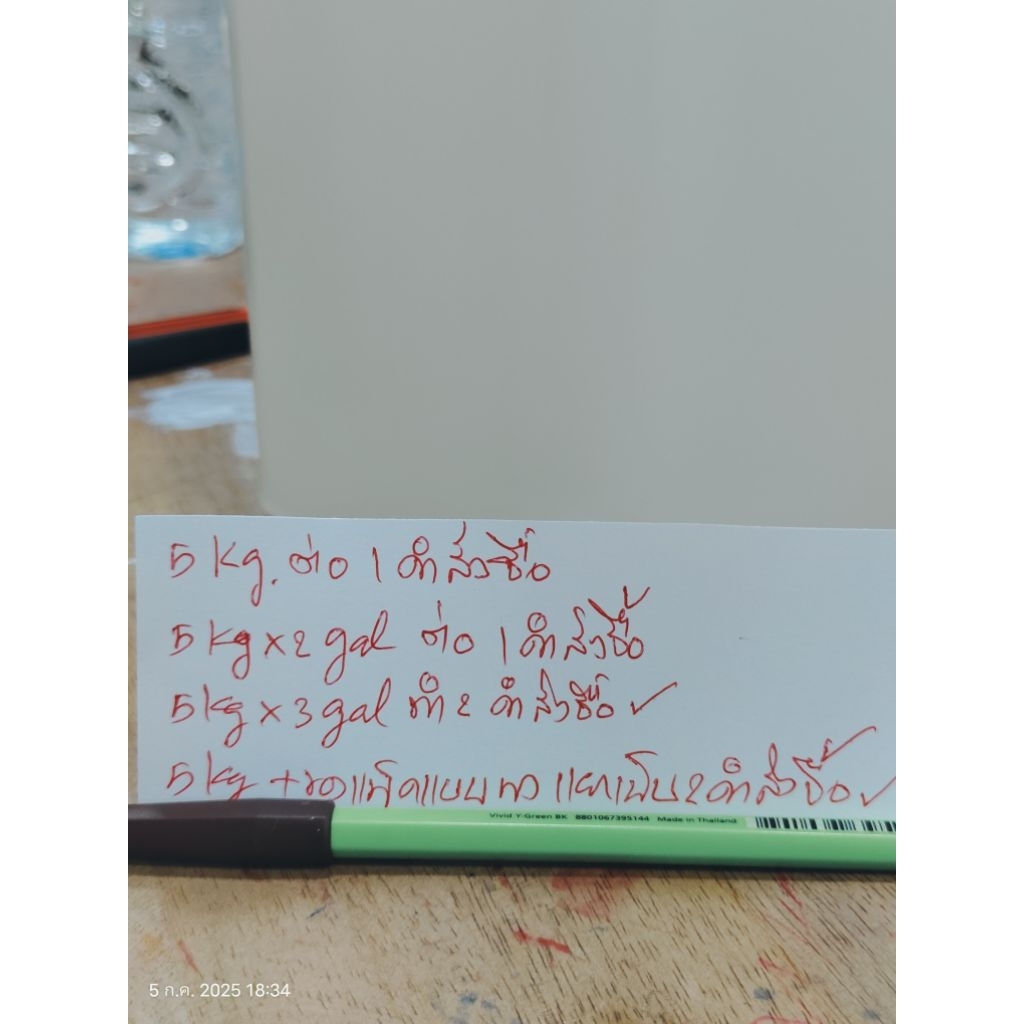 5 Kg. ต่อ 1 คำสั่งซื้อ
5 Kg x 2 gal ต่อ 1 คำสั่งซื้อ
5 kg x 3 gal ทำ 2 คำสั่งซื้อ ✓
5 kg + ขวดแพ็คแบบ แยกเป็น 2 คำสั่งซื้อ ✓
Vivid Y-Green BK 8801067395144 Made in Thailand
5 ก.ค. 2025 18:34